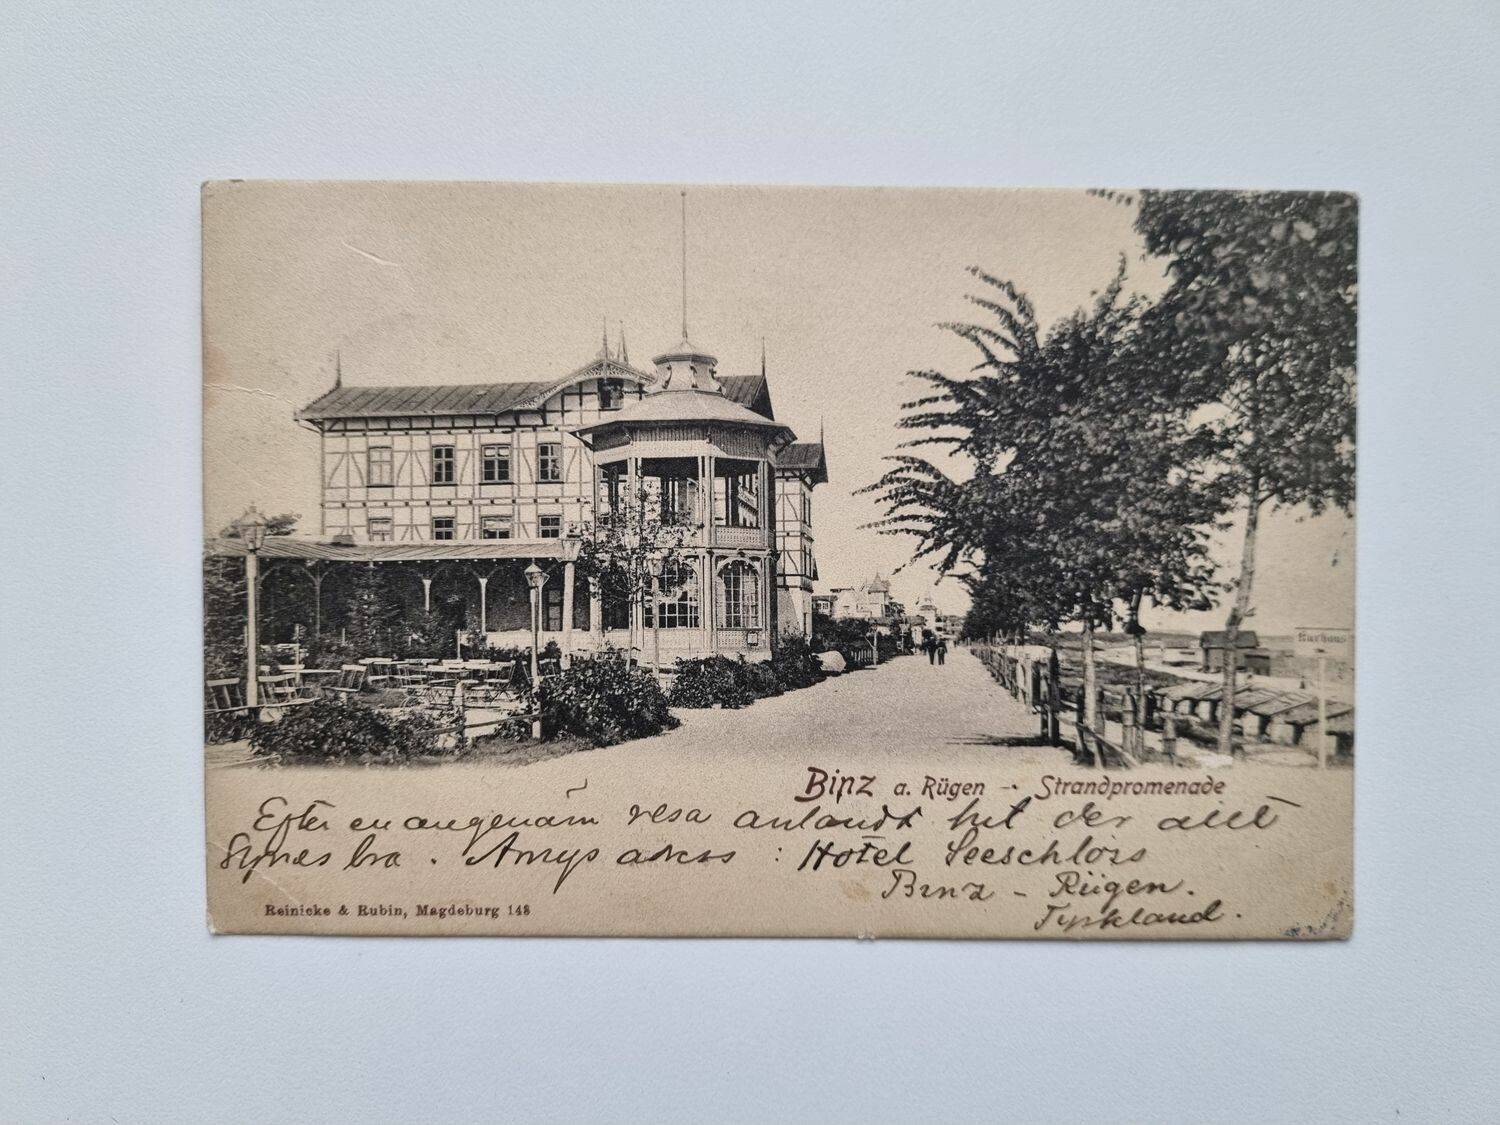 Kurhaus
Binz a. Rügen - Strandpromenade
Efter en angenäm resa anländt hit der allt
synes bra. Amys adress: Hotel Seeschloss
Binz - Rügen.
Tyskland.
Reinicke & Rubin, Magdeburg 148